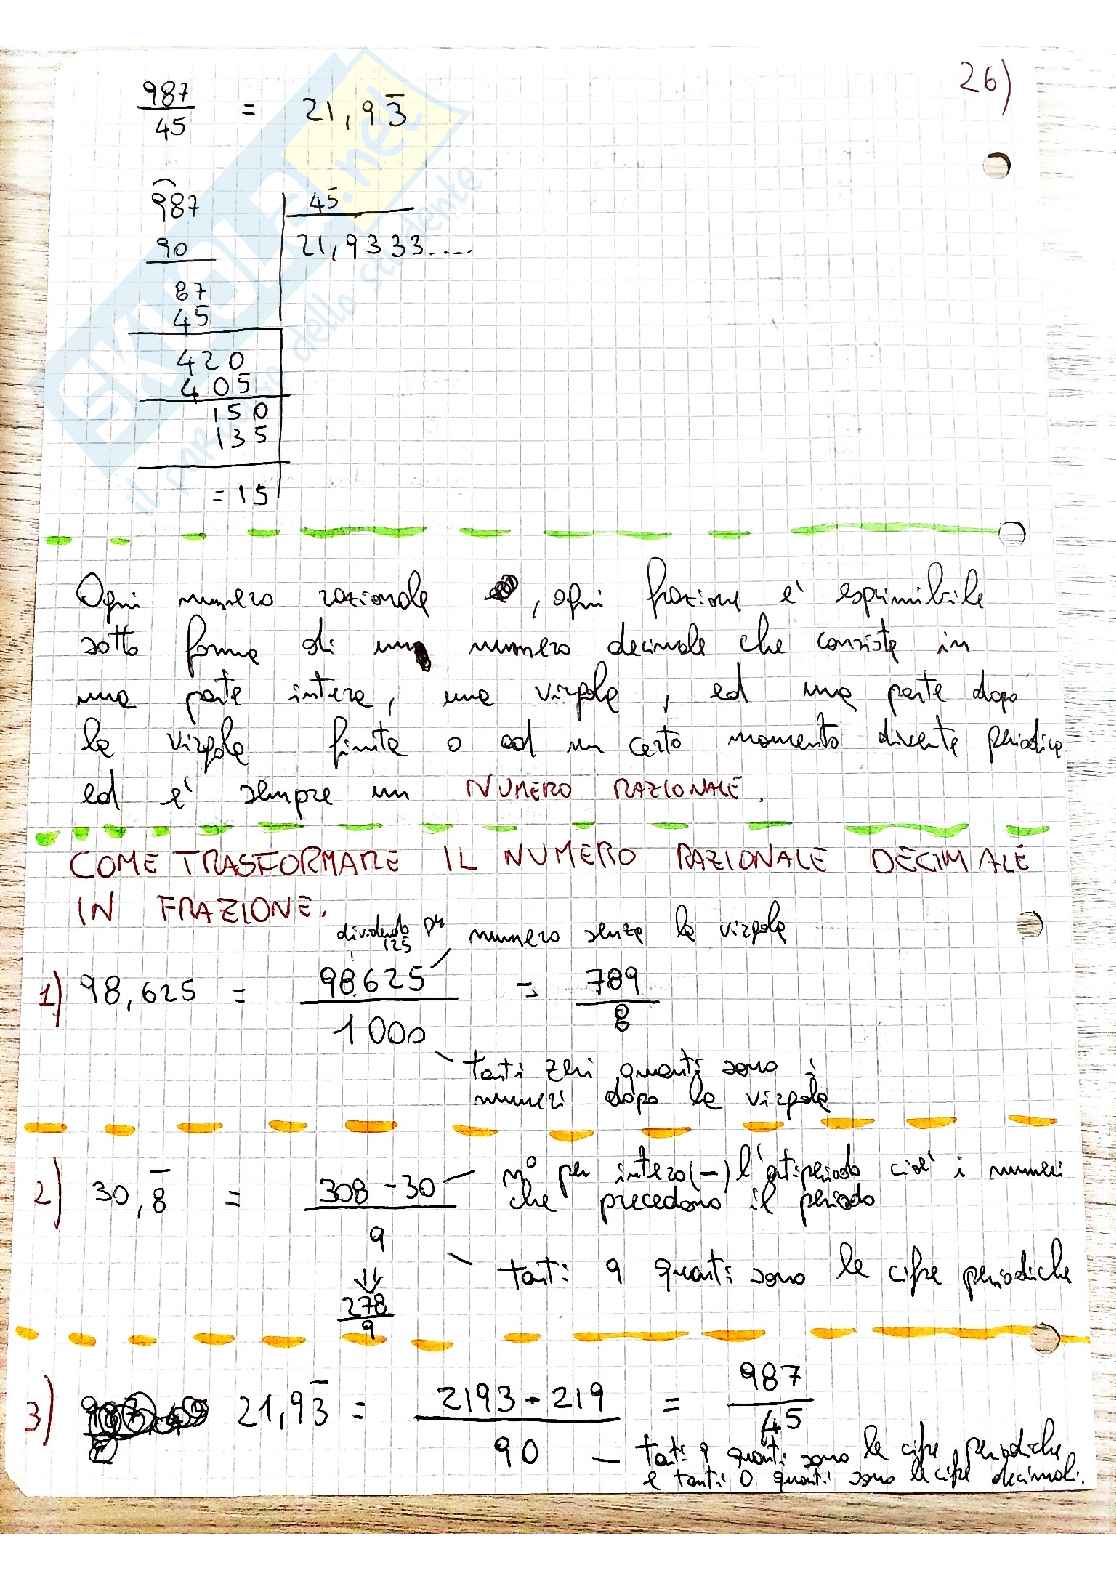 26)
987/45 = 21,93̅
987 | 45
90 | 21,9333....
87
45
420
405
150
135
=15
Ogni numero razionale , ogni frazione e' esprimibile
sotto forma di un numero decimale che consiste in
una parte intera, una virgola, ed una parte dopo
la virgola finita o ad un certo momento diventa periodica
ed e' sempre un NUMERO RAZIONALE.
COME TRASFORMARE IL NUMERO RAZIONALE DECIMALE
IN FRAZIONE.
dividendo per 125
numero senza la virgola
1) 98,625 = 98625/1000 = 789/8
tanti zeri quanti sono i
numeri dopo la virgola
2) 30,8̅ = 308-30/9
n° per intero (-) l'antiperiodo cioe' i numeri
che precedono il periodo
tanti 9 quanti sono le cifre periodiche
278/9
3) 21,93̅ = 2193-219/90 = 987/45
tanti 9 quanti sono le cifre periodiche
e tanti 0 quanti sono le cifre decimali.
SKUOLA.net
il dello studente